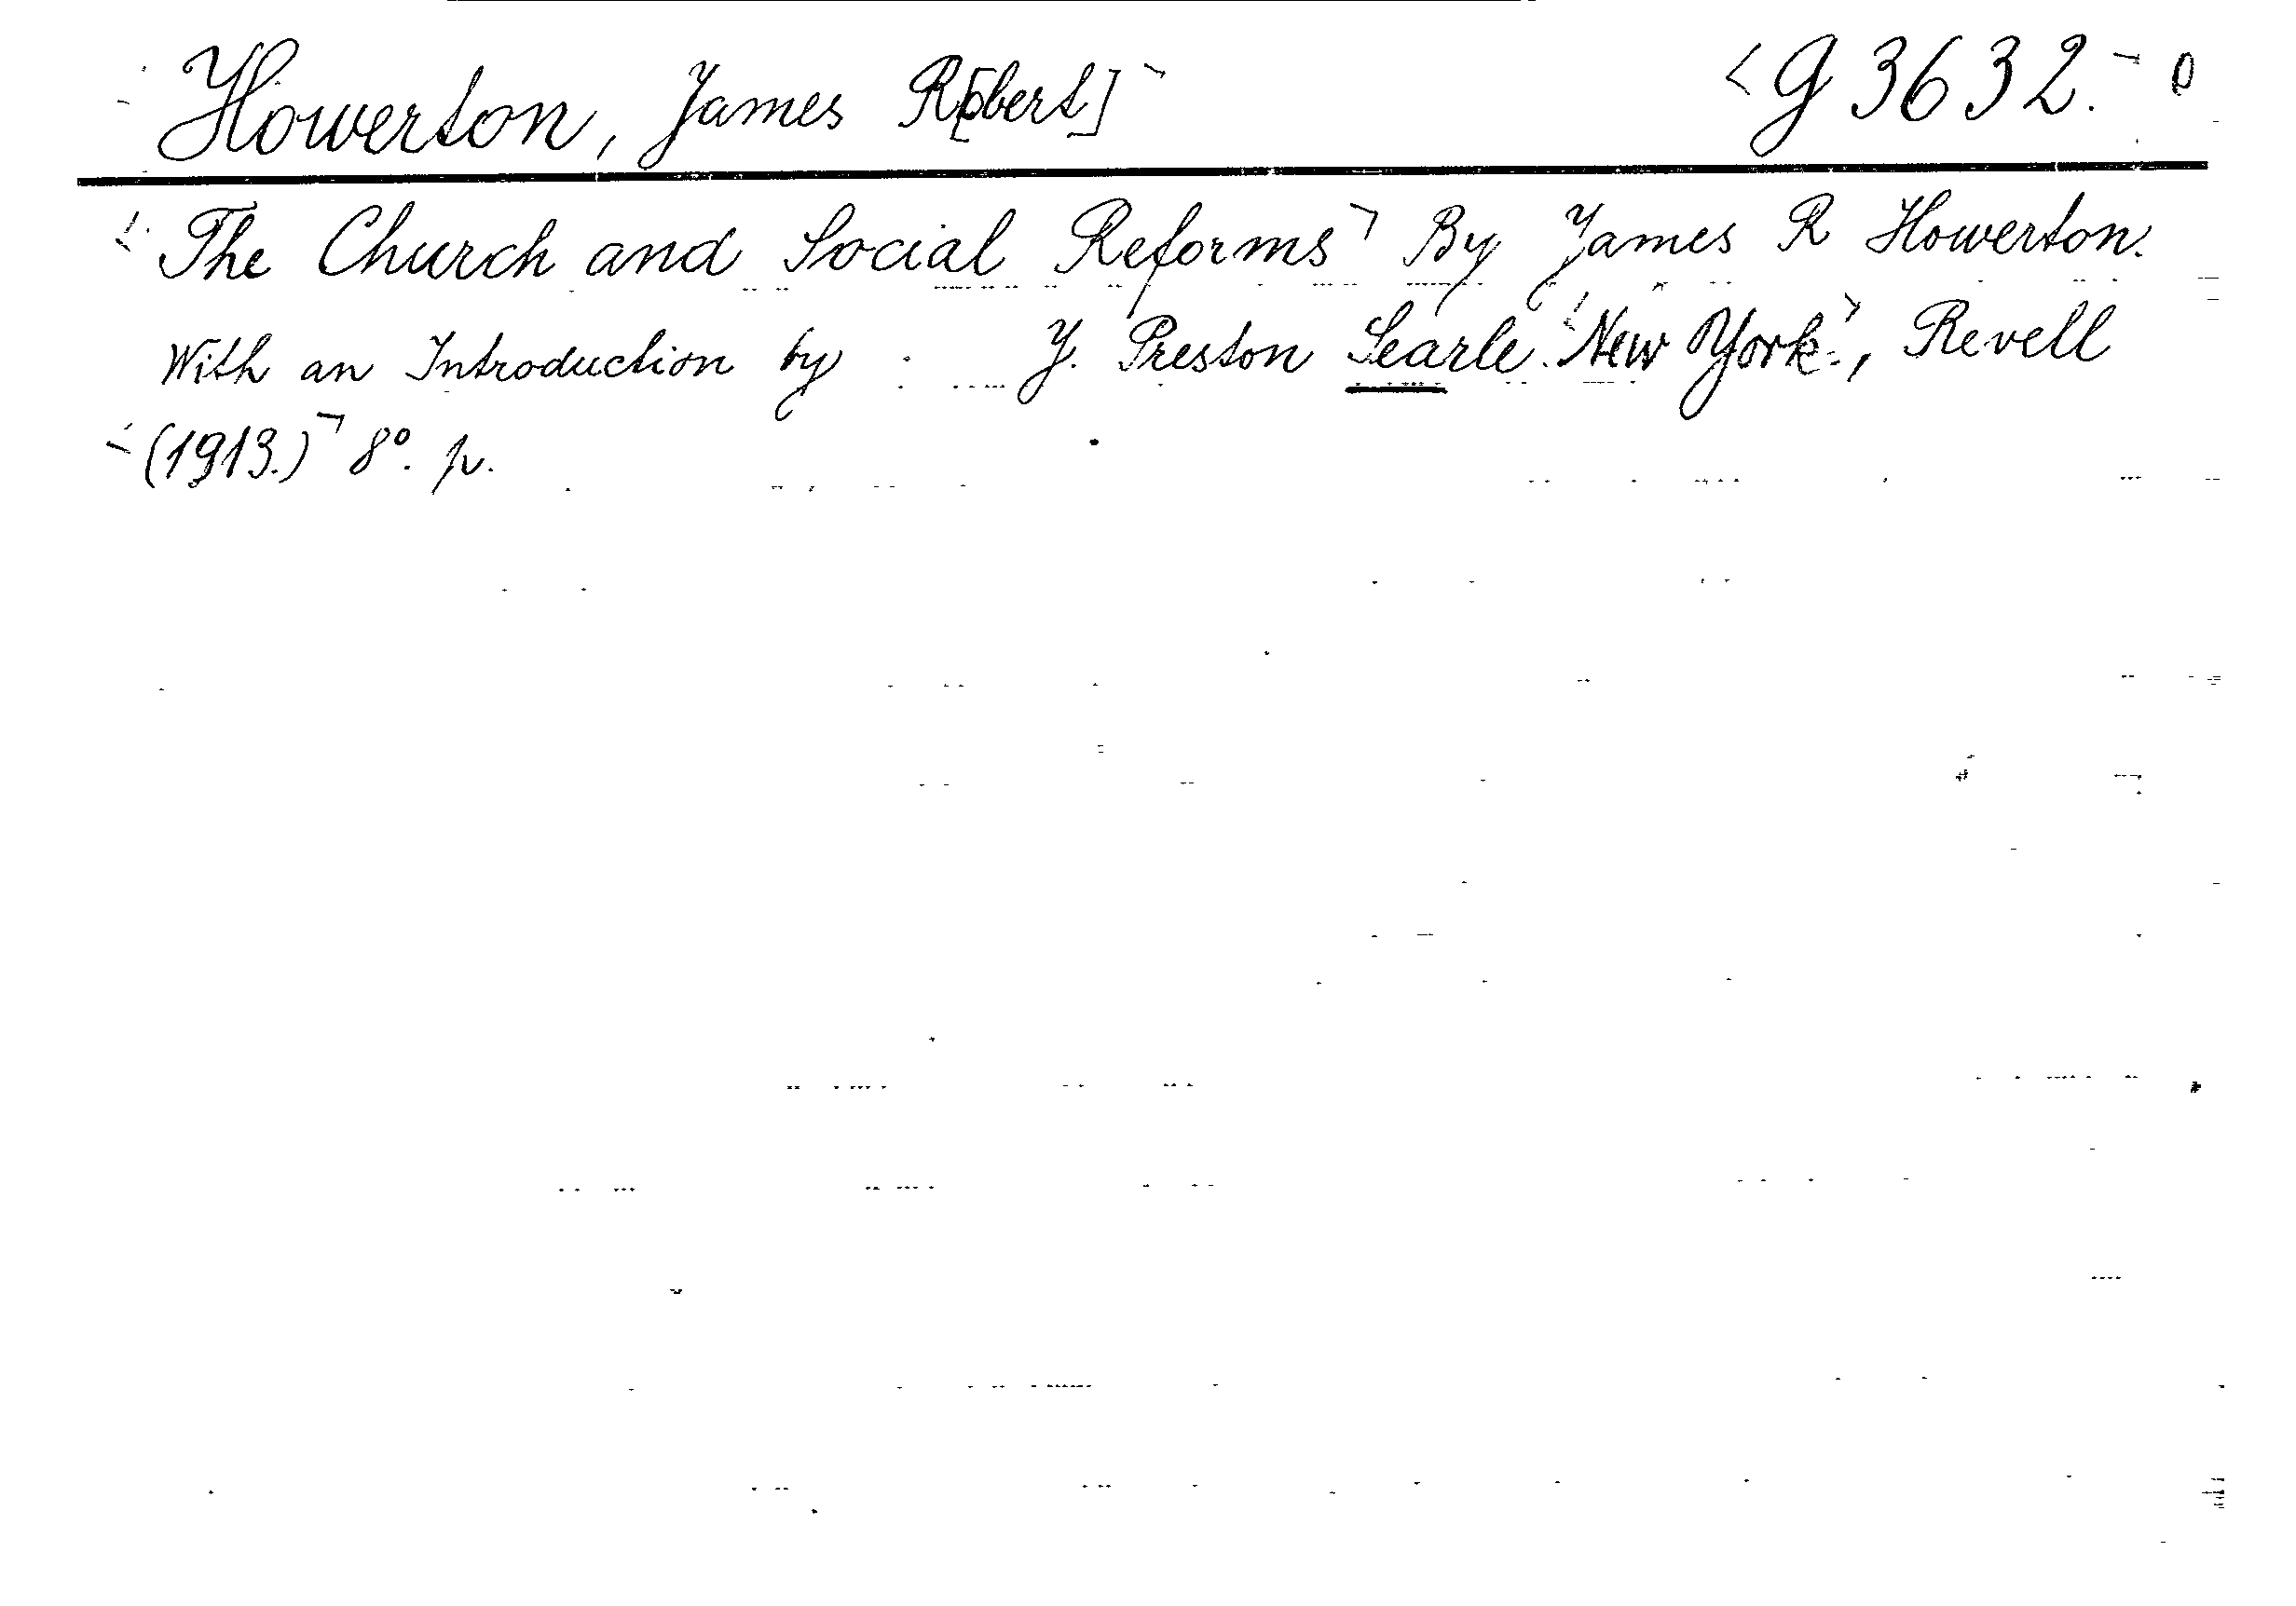 Howerton, James R[obert] G 3632.
The Church and Social Reforms By James R Howerton.
With an Introduction by J. Preston Searle. New York, Revell
(1913.) 8°. p.